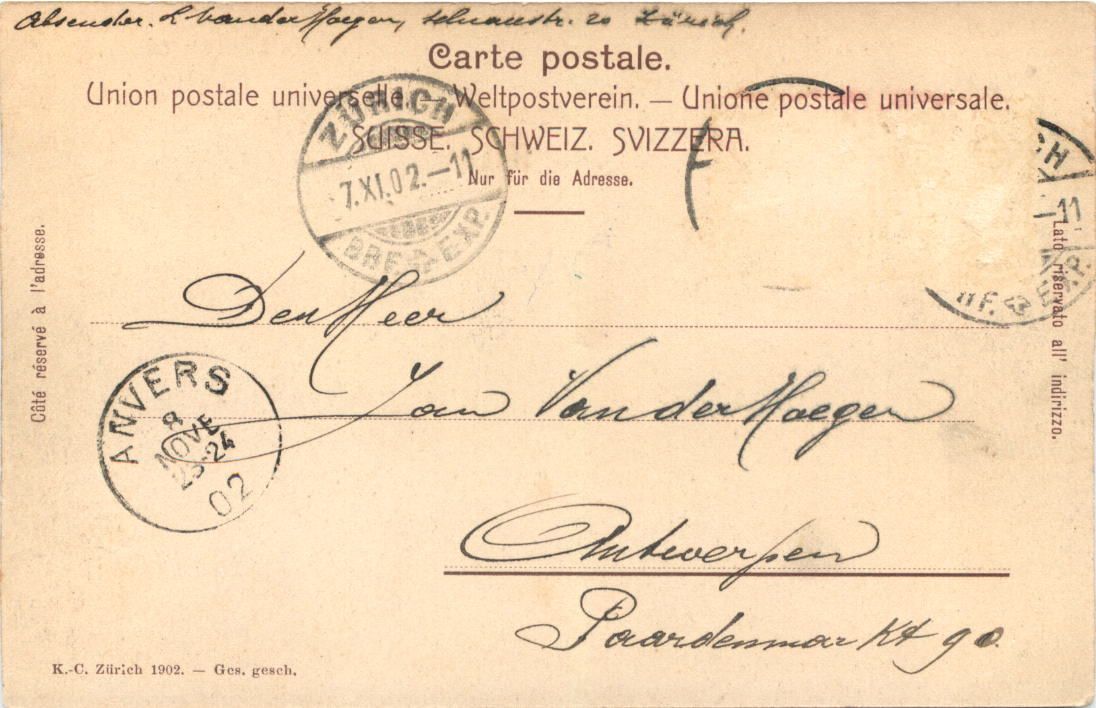 Absender. L Van der Haegen, 20 Zürich.
Carte postale.
Union postale universelle. — Weltpostverein. — Unione postale universale.
SUISSE. SCHWEIZ. SVIZZERA.
Nur für die Adresse.
ZÜRICH
7.XI.02.—11
BRF. EXP.
CH
-11
RF. EXP.
Côté réservé à l'adresse.
Lato riservato all' indirizzo.
Den Heer
Jan Van der Haegen
Antwerpen
Paardenmarkt 90.
ANVERS
8
NOVE
23-24
02
K.-C. Zürich 1902. — Ges. gesch.